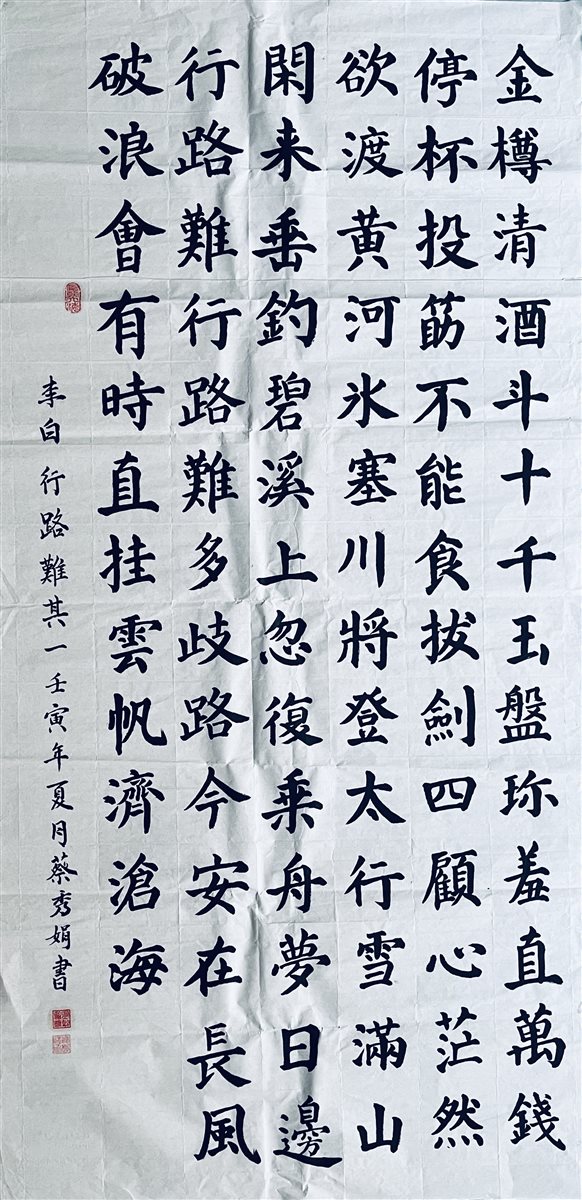 金樽清酒斗十千玉盤珎羞直萬錢
停杯投筯不能食拔劍四顧心茫然
欲渡黄河氷塞川將登太行雪滿山
閑来垂釣碧溪上忽復乗舟夢日邊
行路難行路難多歧路今安在長風
破浪會有時直挂雲帆濟滄海
李白行路難其一壬寅年夏月蔡秀娟書